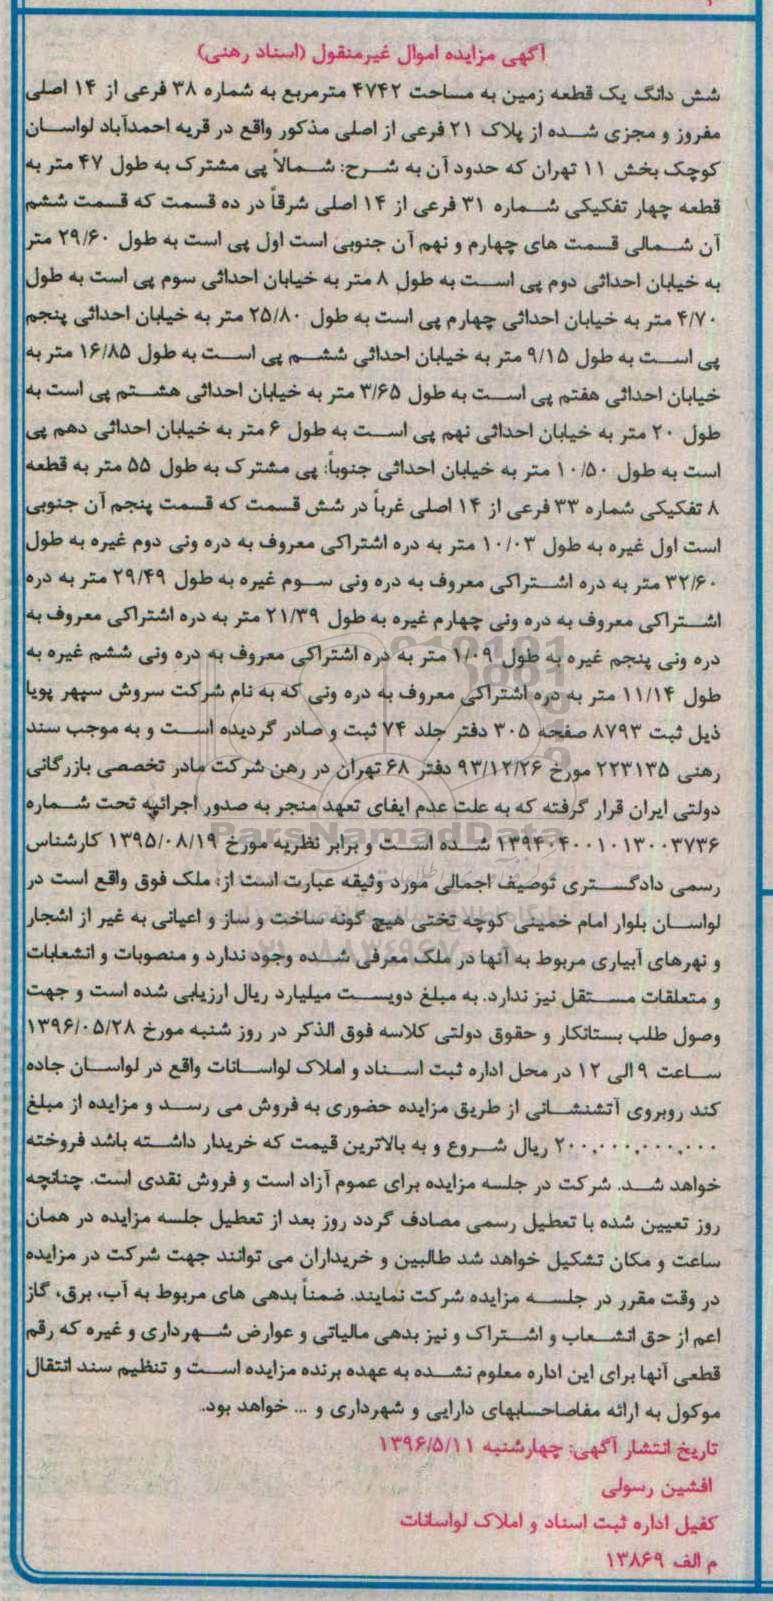 آگهی مزایده اموال غیرمنقول (اسناد رهنی)
شش دانگ یک قطعه زمین به مساحت ۴۷۴۲ مترمربع به شماره ۳۸ فرعی از ۱۴ اصلی
مفروز و مجزی شده از پلاک ۲۱ فرعی از اصلی مذکور واقع در قریه احمدآباد لواسان
کوچک بخش ۱۱ تهران که حدود آن به شرح: شمالاً پی مشترک به طول ۴۷ متر به
قطعه چهار تفکیکی شماره ۳۱ فرعی از ۱۴ اصلی شرقاً در ده قسمت که قسمت ششم
آن شمالی قسمت های چهارم و نهم آن جنوبی است اول پی است به طول ۲۹/۶۰ متر
به خیابان احداثی دوم پی است به طول ۸ متر به خیابان احداثی سوم پی است به طول
۴/۷۰ متر به خیابان احداثی چهارم پی است به طول ۲۵/۸۰ متر به خیابان احداثی پنجم
پی است به طول ۹/۱۵ متر به خیابان احداثی ششم پی است به طول ۱۶/۸۵ متر به
خیابان احداثی هفتم پی است به طول ۳/۶۵ متر به خیابان احداثی هشتم پی است به
طول ۲۰ متر به خیابان احداثی نهم پی است به طول ۶ متر به خیابان احداثی دهم پی
است به طول ۱۰/۵۰ متر به خیابان احداثی جنوباً: پی مشترک به طول ۵۵ متر به قطعه
۸ تفکیکی شماره ۳۳ فرعی از ۱۴ اصلی غرباً در شش قسمت که قسمت پنجم آن جنوبی
است اول غیره به طول ۱۰/۰۳ متر به دره اشتراکی معروف به دره ونی دوم غیره به طول
۳۲/۶۰ متر به دره اشتراکی معروف به دره ونی سوم غیره به طول ۲۹/۴۹ متر به دره
اشتراکی معروف به دره ونی چهارم غیره به طول ۲۱/۳۹ متر به دره اشتراکی معروف به
دره ونی پنجم غیره به طول ۱/۰۹ متر به دره اشتراکی معروف به دره ونی ششم غیره به
طول ۱۱/۱۴ متر به دره اشتراکی معروف به دره ونی که به نام شرکت سروش سپهر پویا
ذیل ثبت ۸۷۹۳ صفحه ۳۰۵ دفتر جلد ۷۴ ثبت و صادر گردیده است و به موجب سند
رهنی ۲۲۳۱۳۵ مورخ ۹۳/۱۲/۲۶ دفتر ۶۸ تهران در رهن شرکت مادر تخصصی بازرگانی
دولتی ایران قرار گرفته که به علت عدم ایفای تعهد منجر به صدور اجرائیه تحت شماره
۱۳۹۴۰۴۰۰۱۰۱۳۰۰۳۷۳۶ شده است و برابر نظریه مورخ ۱۳۹۵/۰۸/۱۹ کارشناس
رسمی دادگستری توصیف اجمالی مورد وثیقه عبارت است از: ملک فوق واقع است در
لواسان بلوار امام خمینی کوچه تختی هیچ گونه ساخت و ساز و اعیانی به غیر از اشجار
و نهرهای آبیاری مربوط به آنها در ملک معرفی شده وجود ندارد و منصوبات و انشعابات
و متعلقات مستقل نیز ندارد. به مبلغ دویست میلیارد ریال ارزیابی شده است و جهت
وصول طلب بستانکار و حقوق دولتی کلاسه فوق الذکر در روز شنبه مورخ ۱۳۹۶/۰۵/۲۸
ساعت ۹ الی ۱۲ در محل اداره ثبت اسناد و املاک لواسانات واقع در لواسان جاده
کند روبروی آتشنشانی از طریق مزایده حضوری به فروش می رسد و مزایده از مبلغ
۲۰۰,۰۰۰,۰۰۰,۰۰۰ ریال شروع و به بالاترین قیمت که خریدار داشته باشد فروخته
خواهد شد. شرکت در جلسه مزایده برای عموم آزاد است و فروش نقدی است. چنانچه
روز تعیین شده با تعطیل رسمی مصادف گردد روز بعد از تعطیل جلسه مزایده در همان
ساعت و مکان تشکیل خواهد شد طالبین و خریداران می توانند جهت شرکت در مزایده
در وقت مقرر در جلسه مزایده شرکت نمایند. ضمناً بدهی های مربوط به آب، برق، گاز
اعم از حق انشعاب و اشتراک و نیز بدهی مالیاتی و عوارض شهرداری و غیره که رقم
قطعی آنها برای این اداره معلوم نشده به عهده برنده مزایده است و تنظیم سند انتقال
موکول به ارائه مفاصاحسابهای دارایی و شهرداری و ... خواهد بود.
تاریخ انتشار آگهی: چهارشنبه ۱۳۹۶/۵/۱۱
افشین رسولی
کفیل اداره ثبت اسناد و املاک لواسانات
م الف ۱۳۸۶۹
ParsNamadData